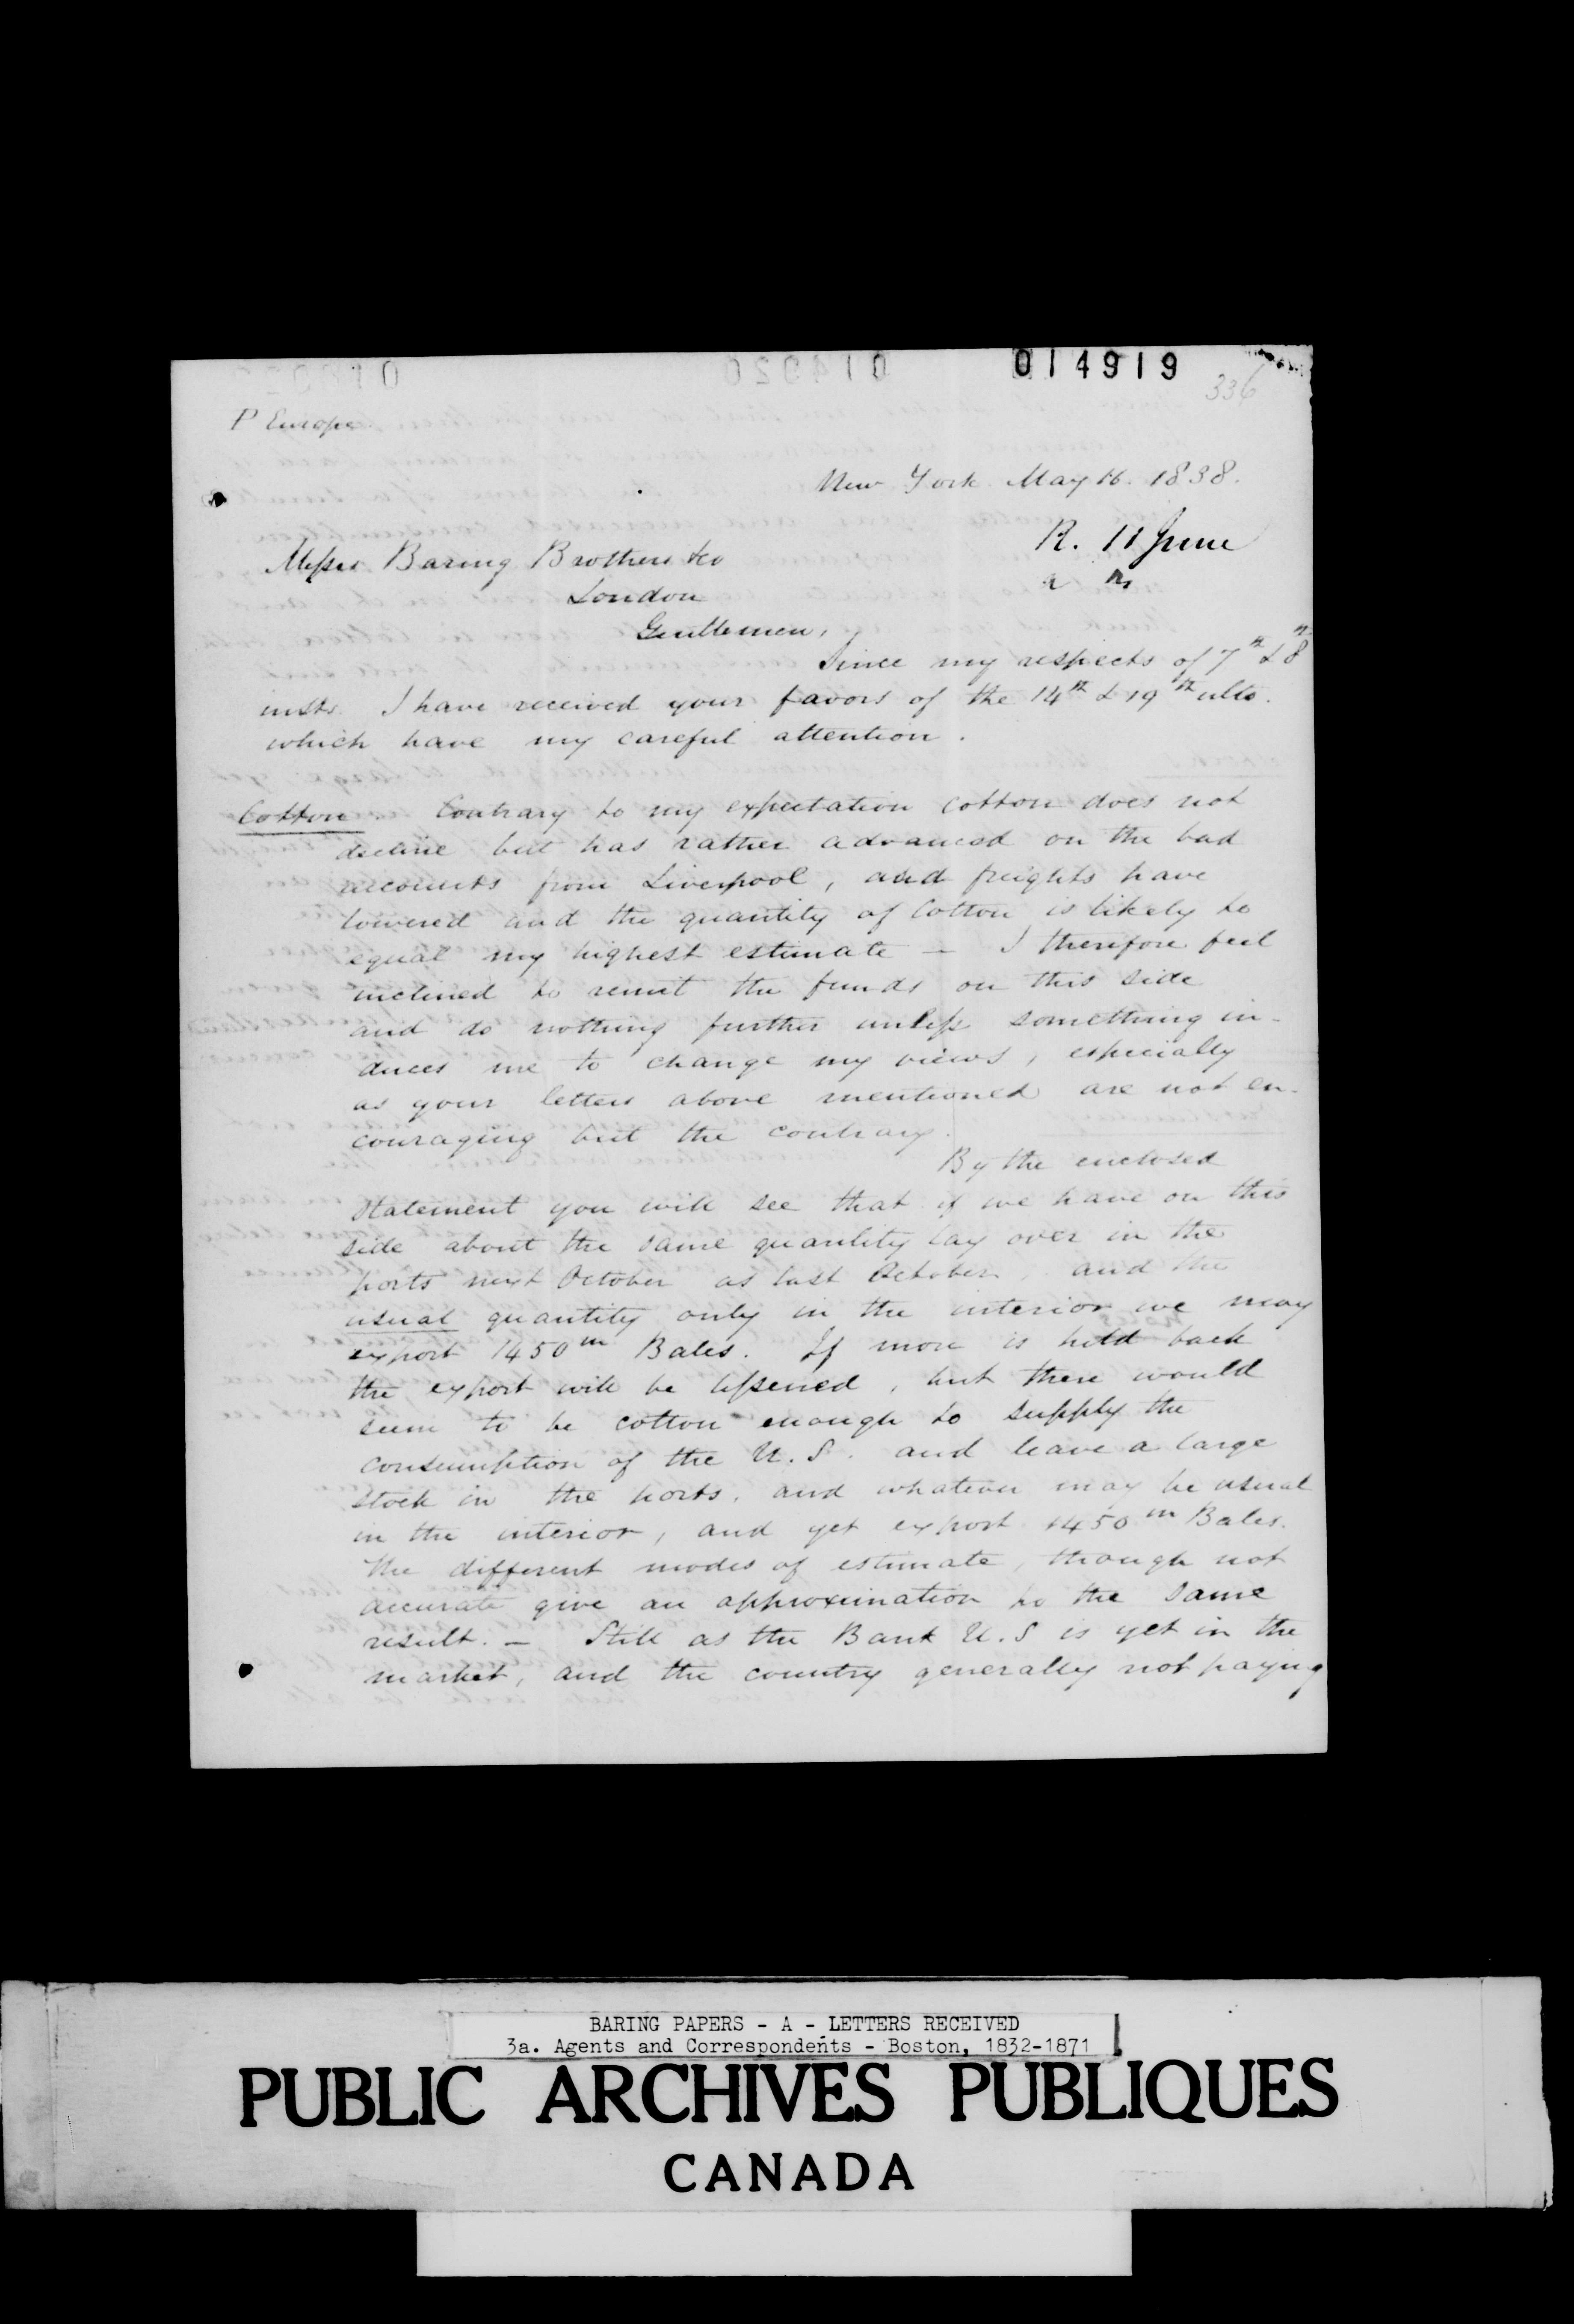 014919
336
P Europe
New York May 16. 1838.
R. 11 June
Messrs Baring Brothers &co
London
Gentlemen,
Since my respects of 7th & 8th
insts. I have received your favors of the 14th & 19th ulto.
which have my careful attention.
Cotton. Contrary to my expectation cotton does not
decline but has rather advanced on the bad
accounts from Liverpool, and freights have
lowered and the quantity of Cotton is likely to
equal my highest estimate — I therefore feel
inclined to remit the funds on this side
and do nothing further unless something in-
duces me to change my views, especially
as your letters above mentioned are not en-
couraging but the contrary.
By the enclosed
statement you will see that if we have on this
side about the same quantity lay over in the
ports next October as last October, and the
usual quantity only in the interior we may
export 1450m Bales. If more is held back
the export will be lessened, but there would
seem to be cotton enough to supply the
consumption of the U.S. and leave a large
stock in the ports, and whatever may be usual
in the interior, and yet export 1450m Bales.
The different modes of estimate, though not
accurate give an approximation to the same
result. — Still as the Bank U.S is yet in the
market, and the country generally not paying
BARING PAPERS - A - LETTERS RECEIVED
3a. Agents and Correspondents - Boston, 1832-1871
PUBLIC ARCHIVES PUBLIQUES
CANADA